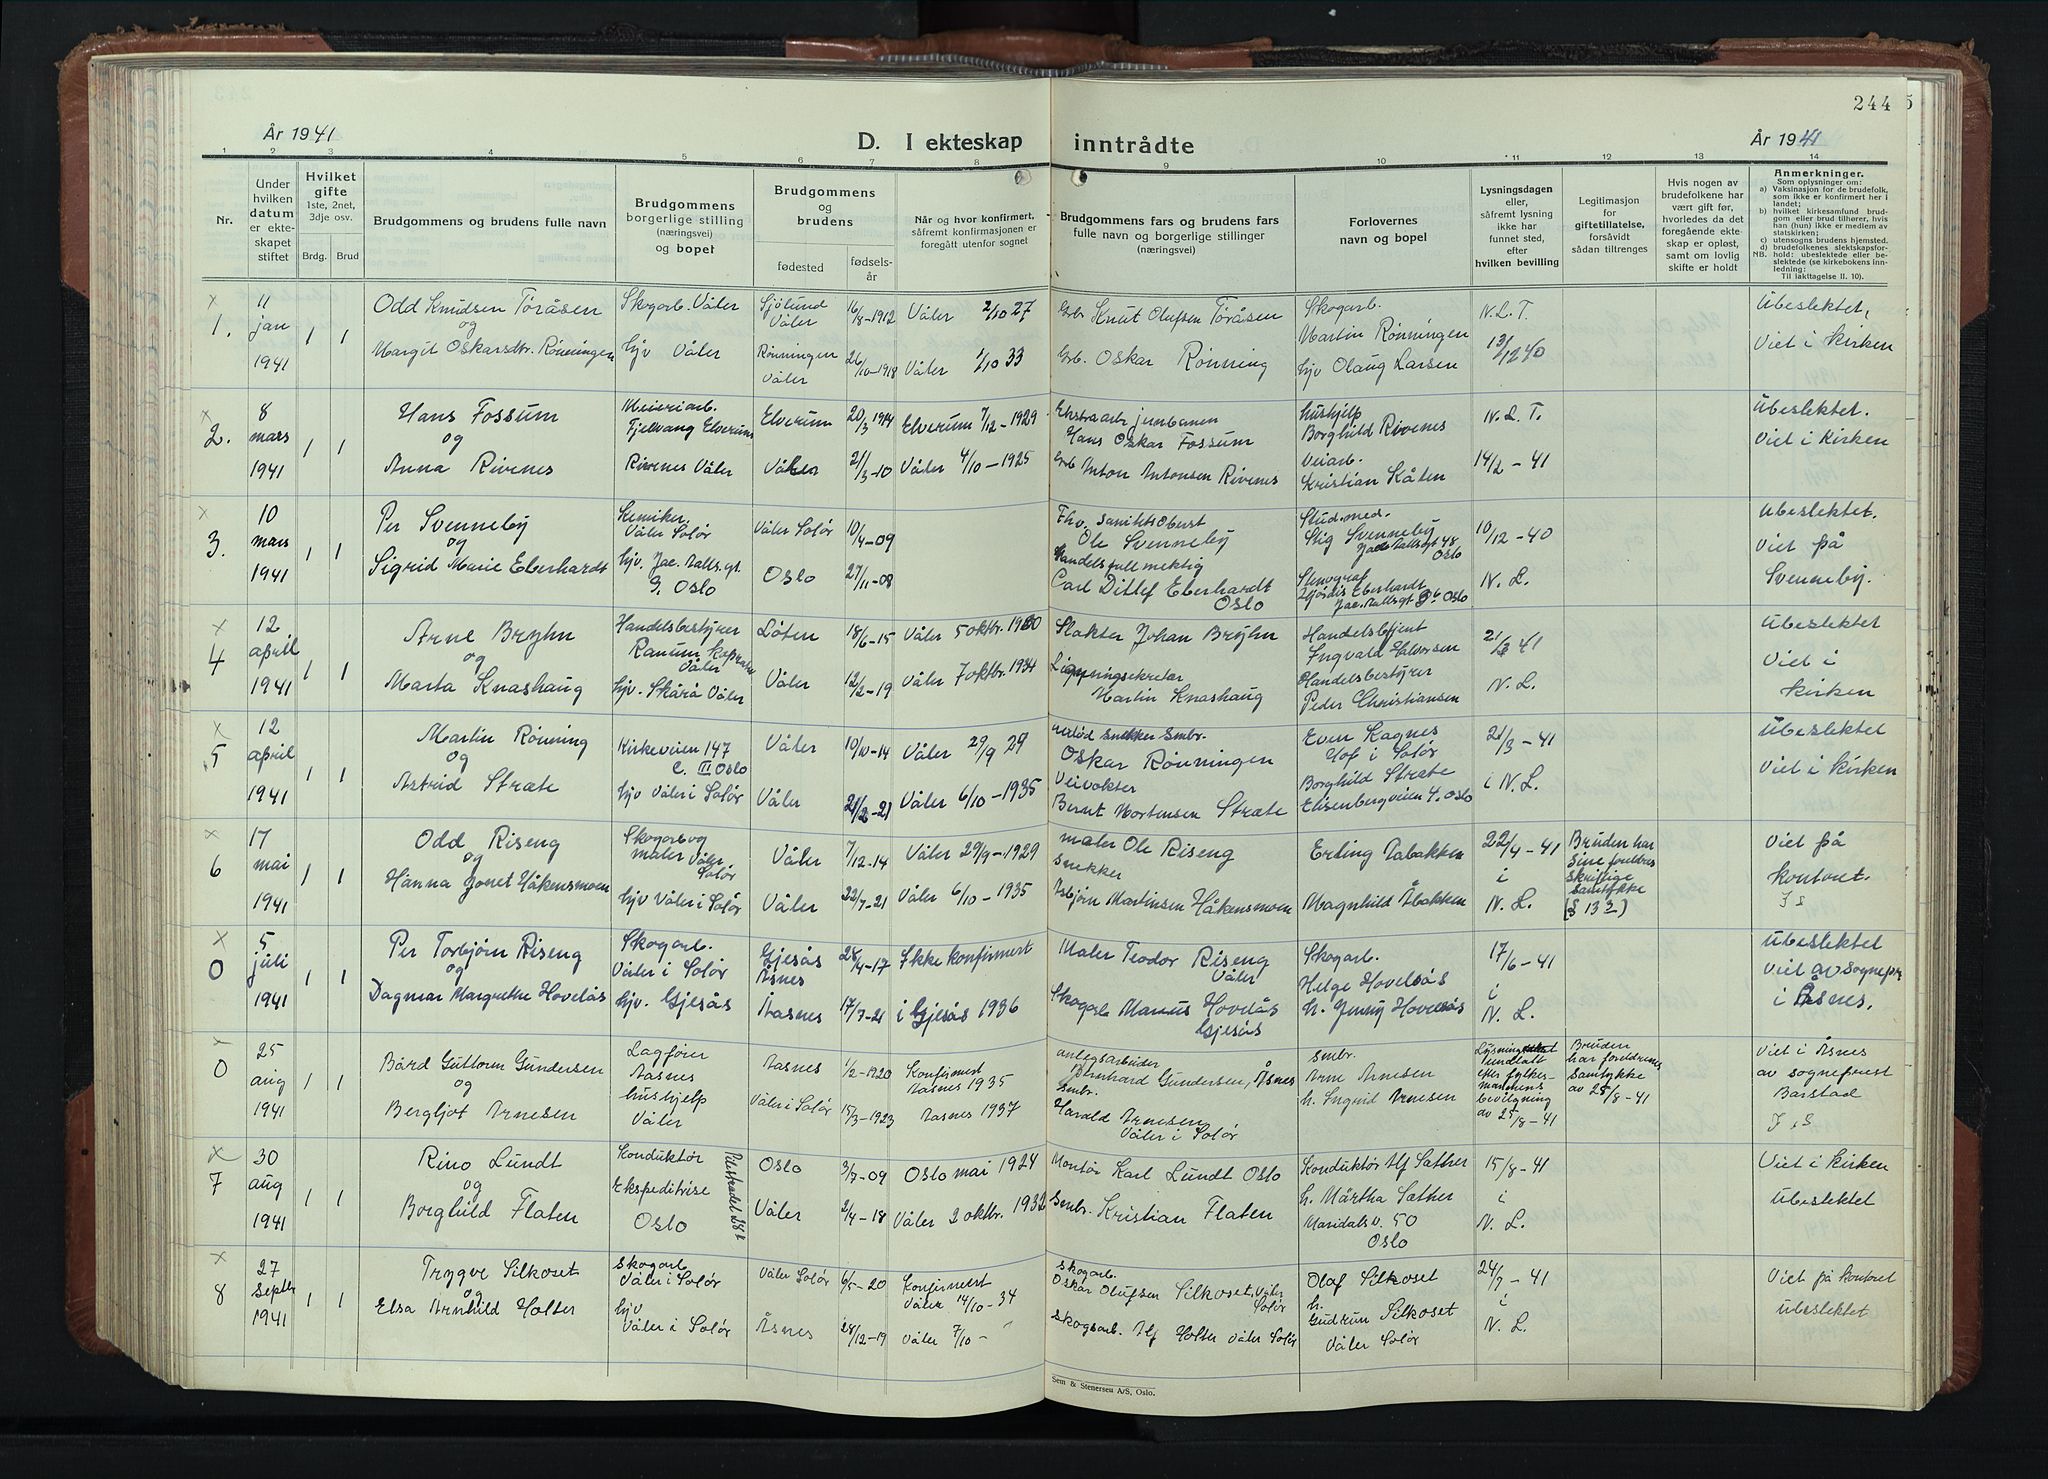 244
5
År 1941
D. I ekteskap inntrådte
År 1941
1 2 3 4 5 6 7 8 9 10 11 12 13 14
Nr.
Under hvilken datum er ekteskapet stiftet
Hvilket gifte 1ste, 2net, 3dje osv.
Brdg. Brud
Brudgommens og brudens fulle navn
Brudgommens borgerlige stilling (næringsvei) og bopel
Brudgommens og brudens
fødested
fødselsår
Når og hvor konfirmert, såfremt konfirmasjonen er foregått utenfor sognet
Brudgommens fars og brudens fars fulle navn og borgerlige stillinger (næringsvei)
Forlovernes navn og bopel
Lysningsdagen eller, såfremt lysning ikke har funnet sted, efter hvilken bevilling
Legitimasjon for giftetillatelse, forsåvidt sådan tiltrenges
Hvis nogen av brudefolkene har vært gift før, hvorledes da det foregående ekteskap er opløst, samt om lovlig skifte er holdt
Anmerkninger.
Som oplysninger om:
a) Vaksinasjon for de brudefolk, som ikke er konfirmert her i landet;
b) hvilket kirkesamfund brudgom eller brud tilhører, hvis han (hun) ikke er medlem av statskirken;
c) utensogns brudens hjemsted.
d) brudefolkenes slektskapsforhold: ubeslektede eller beslektede (se kirkebokens innledning:
NB. Til iakttagelse II. 10).
1. 11 jan 1941 1 1
Odd Knudsen Toråsen og Margit Oskarsdtr. Rønningen
Skogarb. Våler
hjv Våler
Sjölund Våler 16/8-1912 Våler 2/10 27
Rønningen Våler 26/10-1918 Våler 1/10 33
Grb Knut Olufsen Toråsen
Grb. Oskar Rønning
Skogarb. Martin Rønningen
hjv Olaug Larsen
N.L.T. 13/12 40
Ubeslektet, Viet i kirken
2. 8 mars 1941 1 1
Hans Fossum og Anna Rivenes
Meieriarb. Fjellvang Elverum
Rivenes Våler
Elverum 20/3 1914 Elverum 7/12-1929
Våler 21/3-10 Våler 4/10-1925
Ekstraarb jernbanen Hans Oskar Fossum
Grb Anton Antonsen Rivenes
hushjelp Borghild Rivenes
Veiarb. Kristian Kåten
N.L.T. 14/2-41
Ubeslektet. Viet i kirken
3. 10 mars 1941 1 1
Per Svenneby og Sigrid Marie Eberhardt
Kemiker Våler Solør
hjv. Jac. Aallsgt. 9, Oslo
Våler Solør 10/4-09
Oslo 27/11-08
Fhv. Sanitetsoberst Ole Svenneby
Handelsfullmektig Carl Ditlef Eberhardt Oslo
Stud. med. Stig Svenneby Jac Aallsgt 48 Oslo
Stenograf Hjördis Eberhardt Jac. Aallsgt 9b Oslo
10/12-40 N.L.
Ubeslektet. Viet på Svenneby.
4 12 april 1941 1 1
Arne Bryhn og Marta Knashaug
Handelsbestyrer Ranum Våler
hjv. Skårå Våler
Løten 18/6-15 Våler 5 oktbr. 1930
Våler 12/2-19 Våler 7 oktbr. 1934
Slakter Johan Bryhn
Ligningsekretær Martin Knashaug
Handelsbetjent Ingvald Halvorsen
Handelsbestyrer Peder Christiansen
21/3 41 N.L.
Ubeslektet Viet i kirken
5 12 april 1941 1 1
Martin Rønning og Astrid Stræte
Kirkeveien 147 C. III Oslo
hjv Våler i Solør
Våler 10/10-14 Våler 29/9 29
Våler 21/2-21 Våler 6/10-1935
avdød snekker Smbr. Oskar Rønningen
Veivokter Bernt Mortensen Stræte
Even Kagnes Hof i Solør
Borghild Stræte Elisenbergveien 4. Oslo
21/3-41 i N.L.
Ubeslektet Viet i kirken
6 17 mai 1941 1 1
Odd Riseng og Hanna Jonet Håkensmoen
Skogarb og maler Våler. Solør
hjv Våler i Solør
Våler 7/12-14 Våler 29/9-1929
Våler 22/7-21 Våler 6/10-1935
maler Ole Riseng
snekker Asbjörn Martinsen Håkensmoen
Erling Aabakken
Magnhild Åbakken
22/4-41 i N.L.
Bruden har sine foreldres skriftlige samtykke (§ 13 2)
Viet på kontoret. I S
0 5 juli 1941 1 1
Per Torbjørn Riseng og Dagmar Margrethe Hovelås
Skogarb. Våler i Solør
hjv. Gjesås
Gjesås Åsnes 28/4-17 Ikke konfirmert
Åasnes 17/7-21 i Gjesås 1936
Maler Teodor Riseng Våler
Skogarb Marius Hovelås Gjesås
Skogarb. Helge Hovelsås
h. Jenny Hovelsås
17/6-41 i N.L.
Ubeslektet Viet av sognepr i Åsnes.
0 25 aug 1941 1 1
Bård Guttorm Gundersen og Bergljot Arnesen
Lagfører Aasnes
hushjelp Våler
Aasnes 1/2-1920 Konfirmert Aasnes 1935
Våler i Solør 15/3-1923 Aasnes 1937
anlegsarbeider Bernhard Gundersen, Åsnes
Smbr. Harald Arnesen Våler i Solør
smbr. Arne Arnesen
h. Ingrid Arnesen
Lysning undlatt efter fylkesmannens bevilgning av 25/8-41
Bruden har foreldrenes samtykke av 25/8-41
Viet i Åsnes av sogneprest Barstad I, S
7 30 aug 1941 1 1
Rino Lundt og Borghild Flaten
Konduktør
Ekspeditrise Oslo
Oslo 3/7-09 Oslo mai 1924
Våler 2/4-18 Våler 2 oktbr. 1932
Montør Karl Lundt Oslo
Smbr. Kristian Flaten
Konduktør Alf Sæther
h. Märtha Sæther Maridalsv. 50 Oslo
15/8-41 i N.L.
Viet i kirken Ubeslektet
8 27 septbr 1941 1 1
Trygve Silkoset og Elsa Arnhild Holter
Skogarb Våler i Solør
hjv Våler i Solør
Våler Solør 6/5-20 Konfirmert Våler 14/10-34
Åsnes 28/12-19 Våler 7/10- "
Skogarb. Oskar Olufsen Silkoset, Våler Solør
Skogsarb. Alf Holter Våler Solør
Olaf Silkoset
h. Gudrun Silkoset Våler Solør
24/7-41 i N.L.
Viet på kontoret ubeslektet
Sem & Stenersen A/S, Oslo.